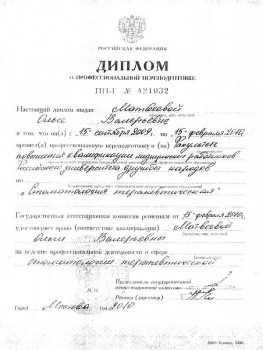 РОССИЙСКАЯ ФЕДЕРАЦИЯ
ДИПЛОМ
О ПРОФЕССИОНАЛЬНОЙ ПЕРЕПОДГОТОВКЕ
ПП-I № 421032
Настоящий диплом выдан Матвеевой
Ольге Валерьевне
в том, что он(а) с 15 сентября 2009 г. по 15 февраля 2010 г.
прошел(а) профессиональную переподготовку в (на) Факультете
повышения квалификации медицинских работников
Российского университета дружбы народов
по
«Стоматология терапевтическая»
Государственная аттестационная комиссия решением от 15 февраля 2010 г.
удостоверяет право (соответствие квалификации) Матвеевой
Ольги Валерьевны
на ведение профессиональной деятельности в сфере
стоматологии терапевтической
Председатель государственной
аттестационной комиссии
Ректор (директор)
Город Москва 2010